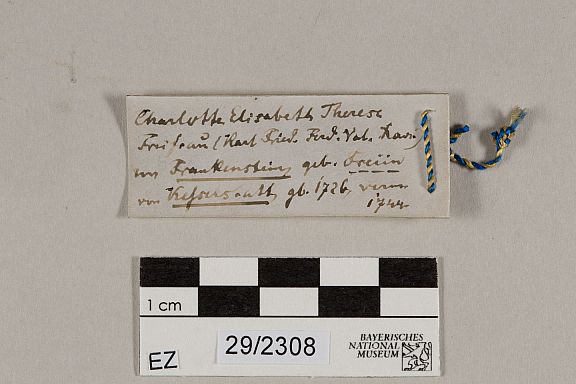 Charlotte Elisabeth Therese
Freifrau (Karl Fried. Ferd. Val. Xaver)
von Frankenstein, geb. Freiin
von gb. 1726, verm
1744
1 cm
EZ
29/2308
BAYERISCHES
NATIONAL
MUSEUM